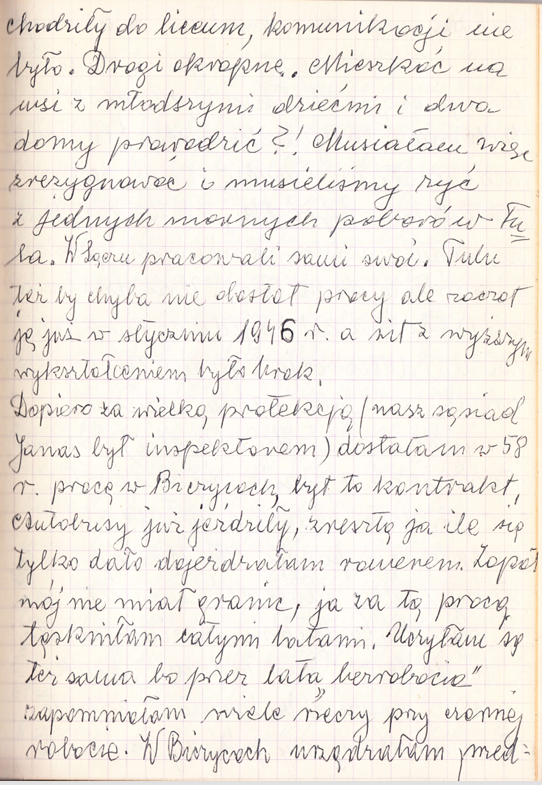 chodziły do liceum, komunikacji nie
było. Drogi okropne. Mieszkać na
wsi z młodszymi dziećmi i dwa
domy prowadzić?! Musiałam więc
zrezygnować i musieliśmy żyć
z jednych marnych poborów Tu-
la. W Sączu pracowali sami swoi. Tulu
też by chyba nie dostał pracy ale zaczął
ją już w styczniu 1946 r. a sił z wyższym
wykształceniem było brak.
Dopiero za wielką protekcją (nasz sąsiad
Janas był inspektorem) dostałam w 58
r. pracę w Biczycach, był to kontrakt,
Autobusy już jeździły, zresztą ja ile się
tylko dało dojeżdżałam rowerem. Zapał
mój nie miał granic, ja za tą pracą
tęskniłam całymi latami. Uczyłam się
też sama bo przez lata „bezrobocia”
zapomniałam wiele rzeczy przy czarnej
robocie. W Biczycach urządzałam przed-